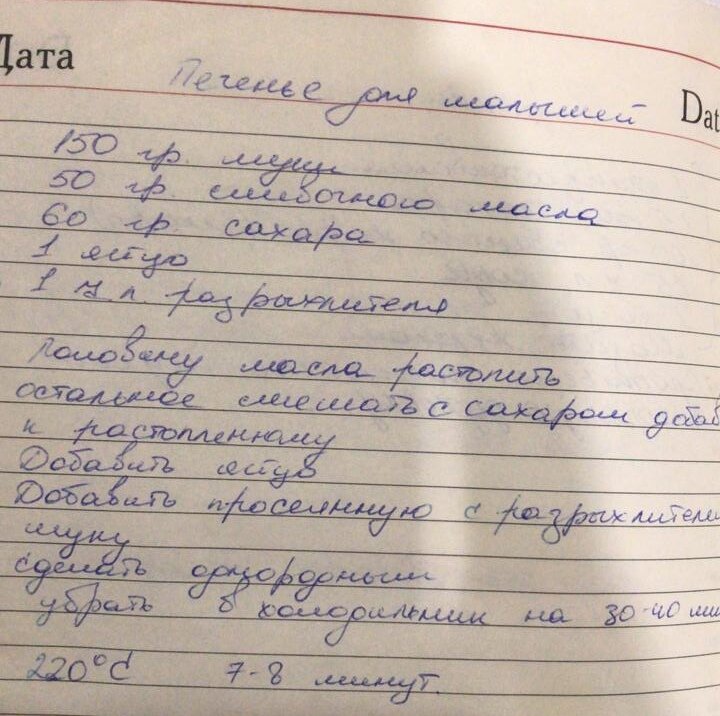 Дата
Печенье для малышей
Dat
150 гр. муки
50 гр. сливочного масла
60 гр. сахара
1 яйцо
1 ч л. разрыхлителя
Половину масла растопить
остальное смешать с сахаром добав
к растопленному
Добавить яйцо
Добавить просеянную с разрыхлителе
муку
сделать однородным
убрать в холодильник на 30-40 мин
220°C 7-8 минут.